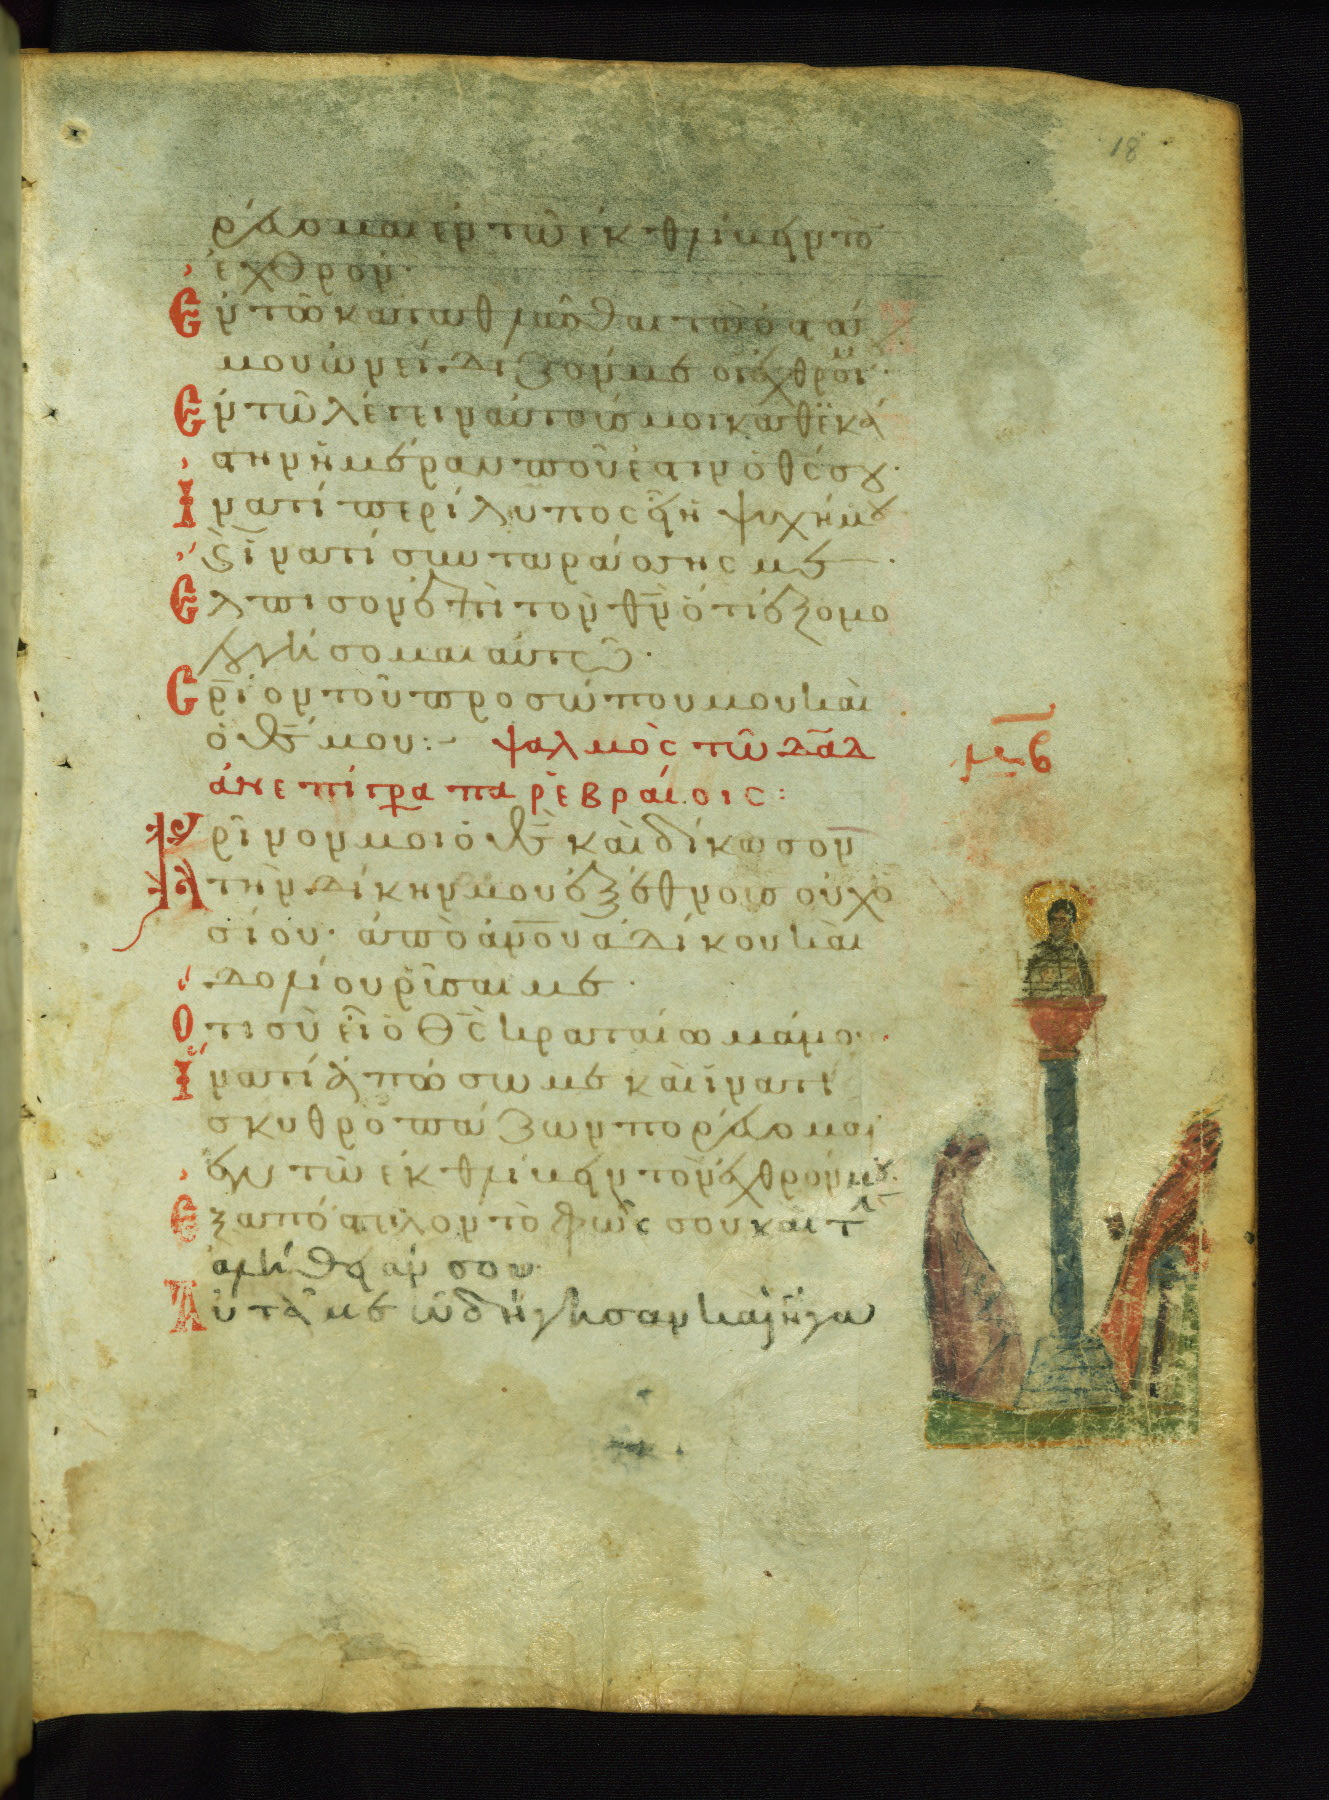 18
ρεύομαι ἐν τῷ ἐκθλίβειν τὸ
ἐχθρόν·
Ἐν τῷ καταθλᾶσθαι τὰ ὀστᾶ
μου ὠνείδιζόν με οἱ ἐχθροί μου·
Ἐν τῷ λέγειν αὐτούς μοι καθ' ἑκά
στην ἡμέραν ποῦ ἐστιν ὁ θεός σου·
Ἱνατί περίλυπος εἶ ἡ ψυχή μου
καὶ ἱνατί συνταράσσεις με·
Ἔλπισον ἐπὶ τὸν θν ὅτι ἐξομο
λογήσομαι αὐτῷ·
Σρίον τοῦ προσώπου μου καὶ
ὁ θς μου:- ψαλμὸς τῷ δαδ
ἀνεπίγρα παρ' ἑβραίοις:
μβ
Κρῖνόν μοι ὁ θς καὶ δίκασον
τὴν δίκην μου ἐξ ἔθνους οὐχ ὁ
σίου· ἀπὸ ἀνου ἀδίκου καὶ
δολίου ῥῦσαι με·
Ὅτι σὺ εἶ ὁ θς κραταίωμά μου·
Ἱνατί ἀπώσω με καὶ ἱνατί
σκυθρωπάζων πορεύομαι
ἐν τῷ ἐκθλίβειν τὸν ἐχθρόν μου·
Ἐξαπόστειλον τὸ φῶς σου καὶ τὴν
ἀλήθειάν σου·
Αὐτά με ὡδήγησαν καὶ ἤγα